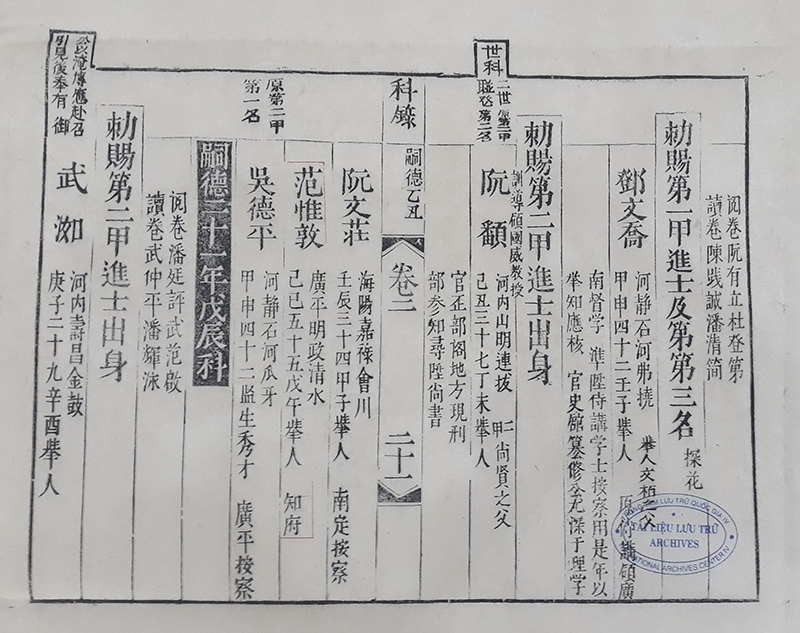 阅卷阮有立杜登第
讀卷陳踐誠潘清简
勅賜第一甲進士及第第三名
探花
鄧文喬
河静石河弗撓
甲申四十二壬子舉人
舉人文栢之父
南督学 準陞侍講学士按察用是年以
举知應核 官史館纂修公尤深于理学
世科
勅賜第二甲進士出身
阮顡
訓導領國威教授
河内山明連拔
己丑三十七丁未舉人
二甲尚賢之父
官至部阁地方現刑
部参知尋陞尚書
科錄
嗣德乙丑
卷二
二十一
阮文莊
海陽嘉祿會川
壬辰三十四甲子舉人 南定按察
范惟敦
廣平明政清水
己巳五十五戊午舉人 知府
原第二甲
第一名
吳德平
河静石河瓜牙
甲申四十二监生秀才 廣平按察
嗣德二十一年戊辰科
阅卷潘廷評武范啟
讀卷武仲平潘輝泳
勅賜第二甲進士出身
引見後奉有 御
武洳
河内壽昌金鼓
庚子二十九辛酉舉人
TÀI LIỆU LƯU TRỮ
ARCHIVES
NATIONAL ARCHIVES CENTER IV